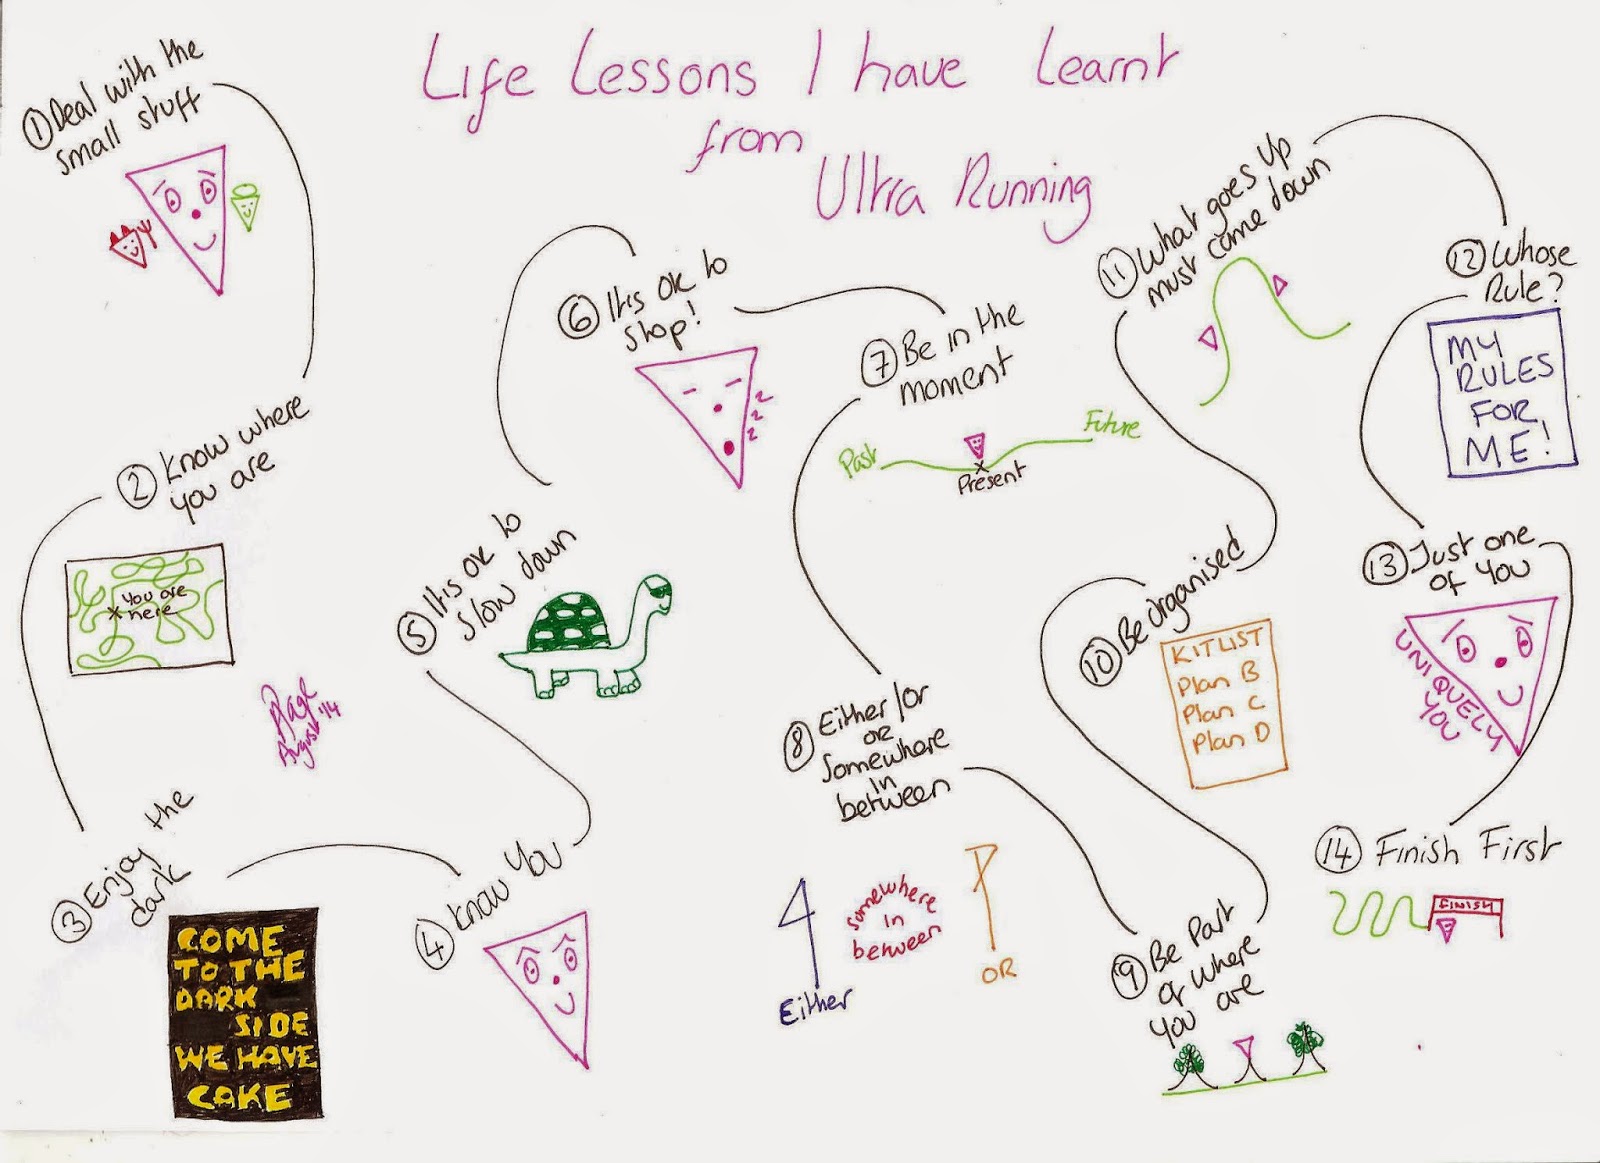 Life Lessons I have Learnt
from
Ultra Running
① Deal with the
small stuff
② Know where
you are
You are
here
③ Enjoy the
dark
COME
TO THE
DARK
SIDE
WE HAVE
CAKE
④ Know You
⑤ It is ok to
Slow down
⑥ It is ok to
stop!
z
z
z
⑦ Be in the
moment
Past
Present
Future
⑧ Either/or
or
Somewhere
in
between
Either
somewhere
in
between
OR
⑨ Be Part
of where
you are
⑩ Be organised
KIT LIST
Plan B
Plan C
Plan D
⑪ What goes Up
must come down
⑫ Whose
Rule?
MY
RULES
FOR
ME!
⑬ Just one
of You
UNIQUELY
YOU
⑭ Finish First
FINISH
August '14